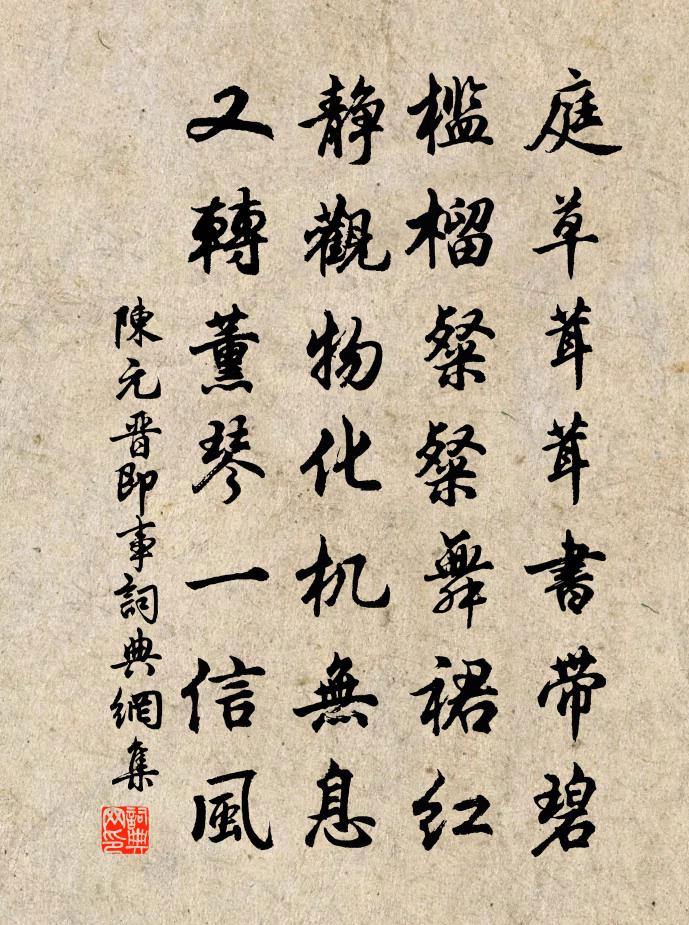 庭草茸茸書帶碧
檻榴粲粲舞裙紅
静觀物化机無息
又轉薰琴一信風
陳元晋即事詞典網集
詞典网印